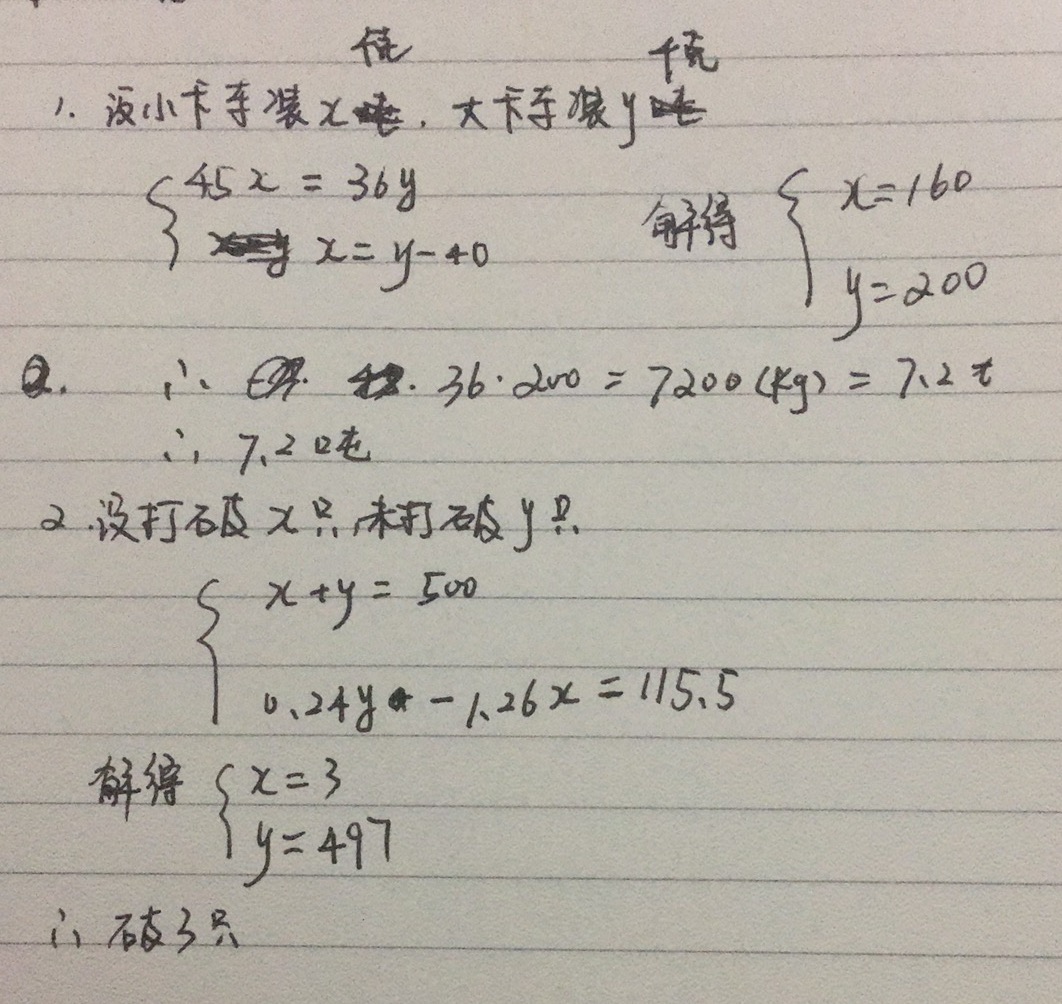 千克 千克
1. 设小卡车装x, 大卡车装y
45x = 36y
x = y-40
解得
x=160
y=200
∴ 36·200 = 7200(kg) = 7.2t
∴ 7.2吨
2. 设打破x只,未打破y只.
x+y = 500
0.24y - 1.26x = 115.5
解得 x=3
y=497
∴ 破3只